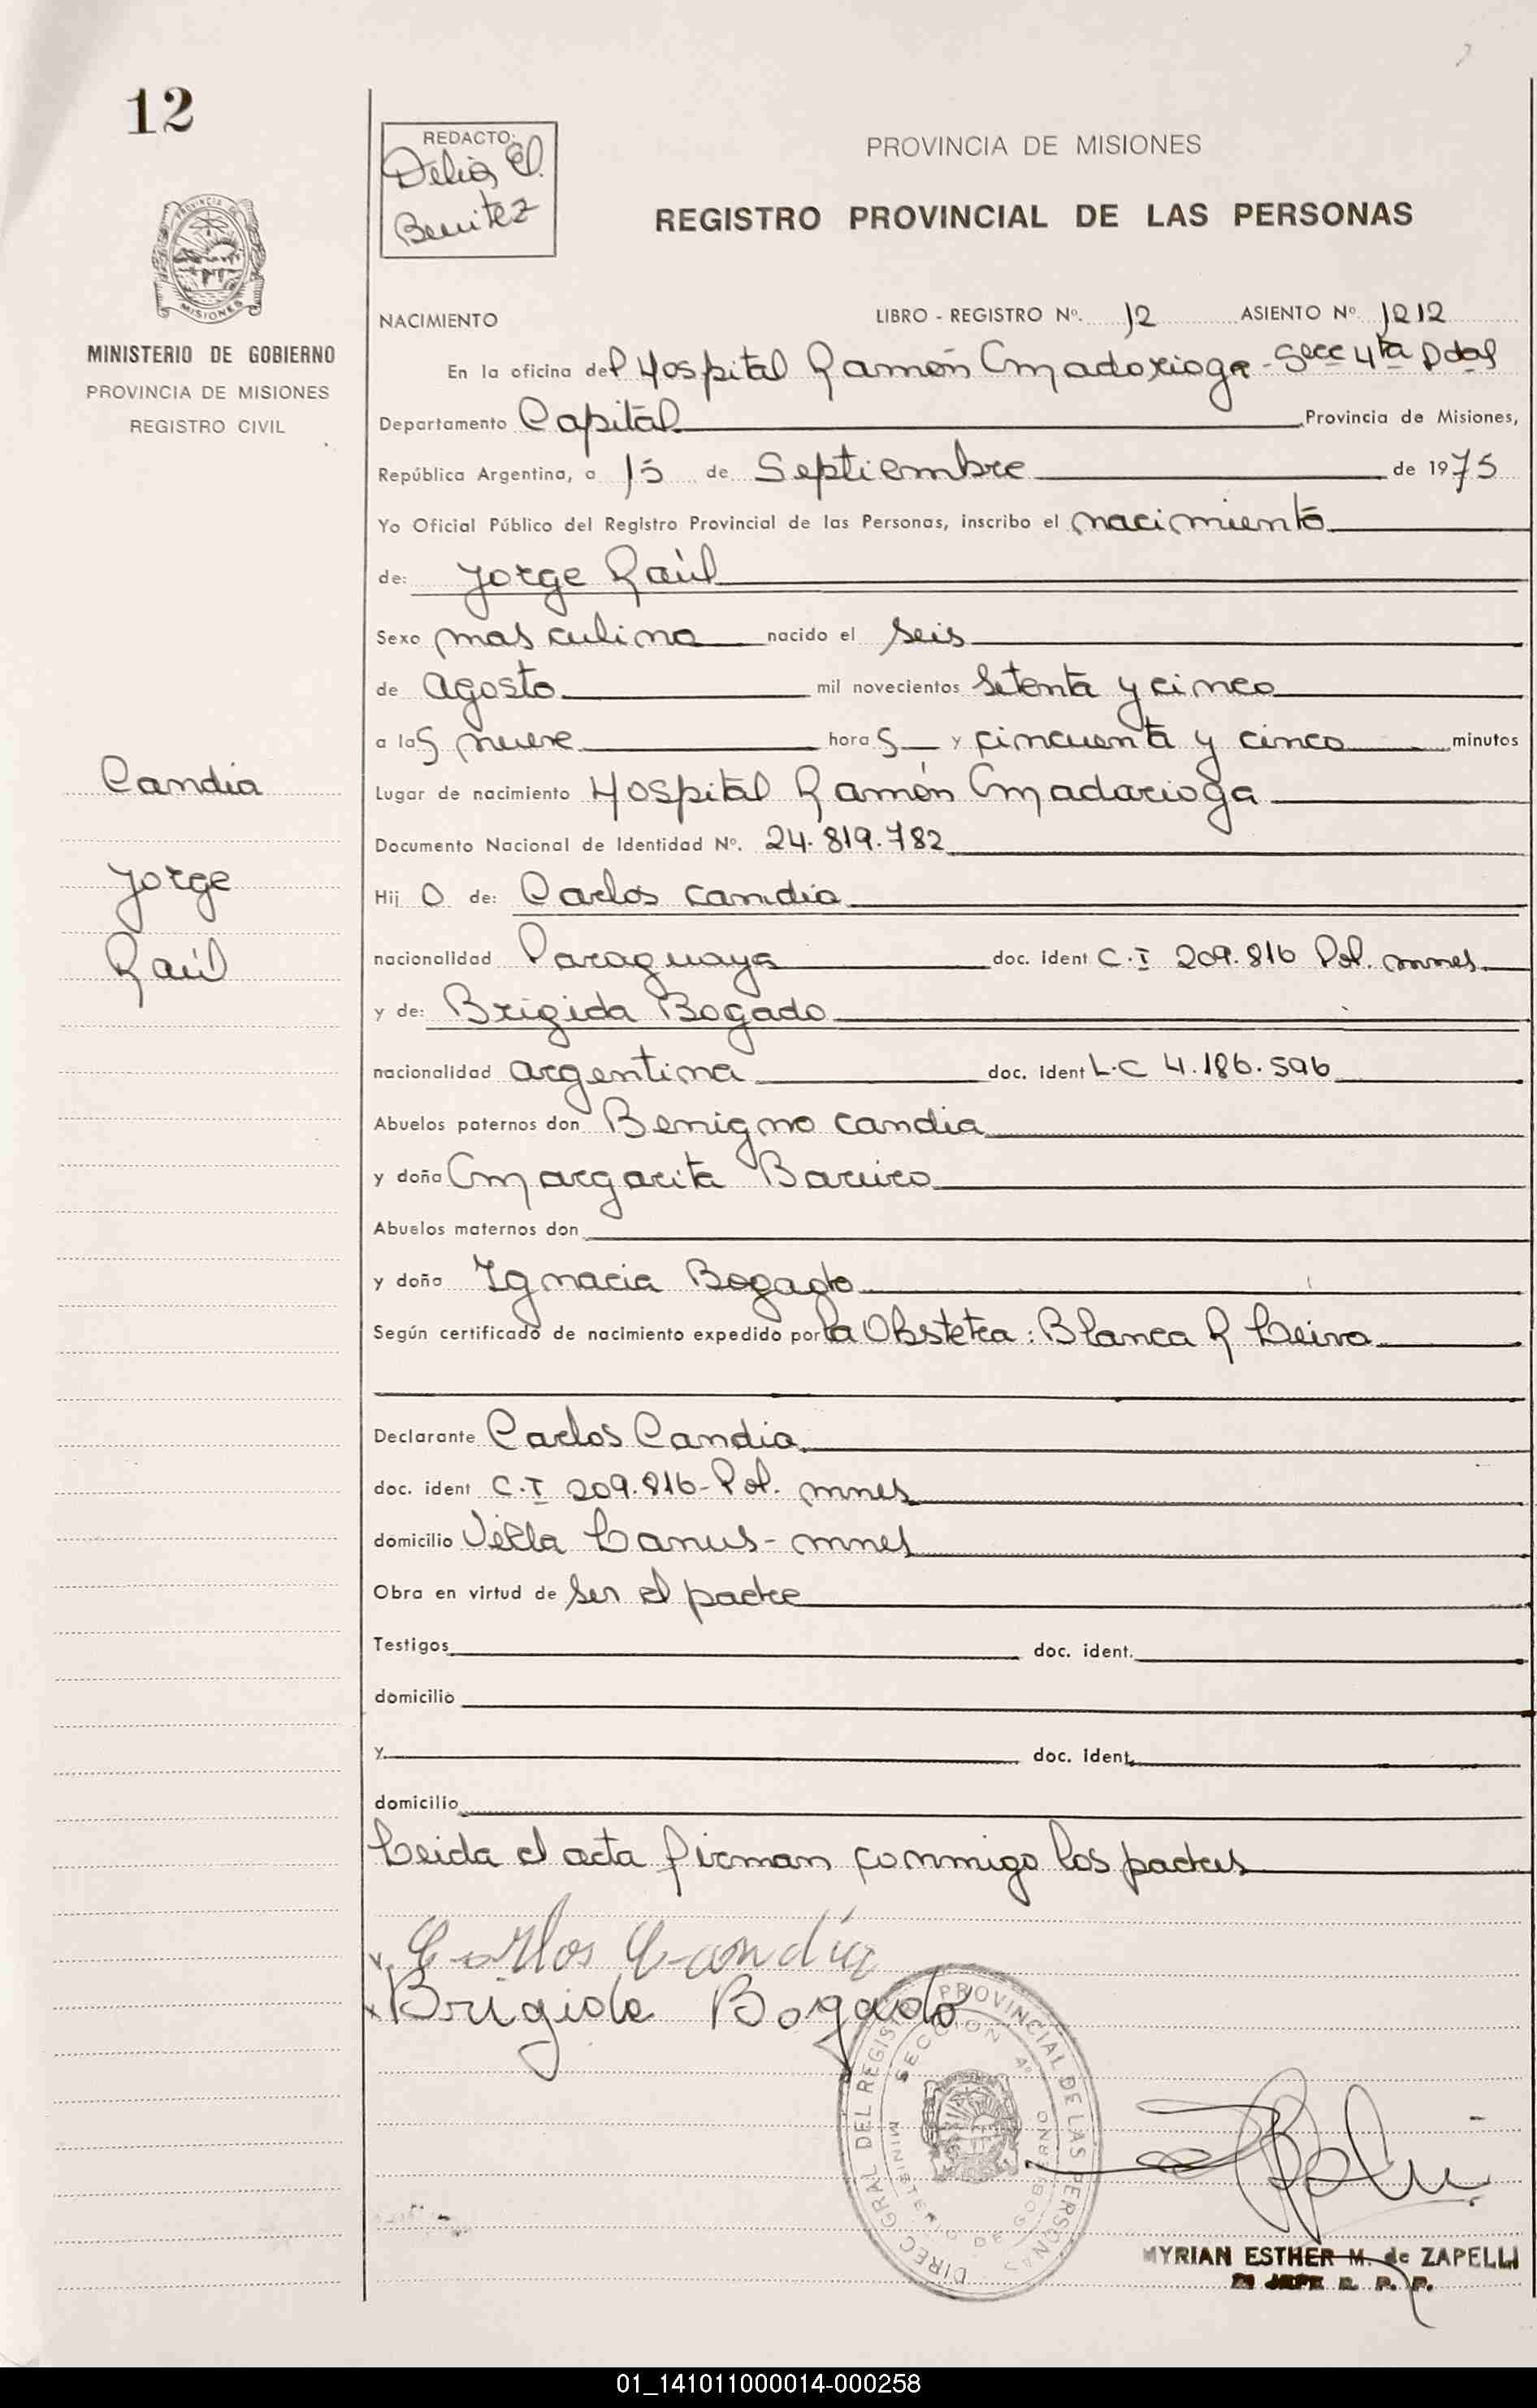 12
REDACTO:
Delia E.
Benitez
PROVINCIA DE MISIONES
REGISTRO PROVINCIAL DE LAS PERSONAS
PROVINCIA DE
MISIONES
MINISTERIO DE GOBIERNO
PROVINCIA DE MISIONES
REGISTRO CIVIL
NACIMIENTO LIBRO - REGISTRO Nº. 12 ASIENTO Nº. 1212
En la oficina del Hospital Ramón Madariaga - Secc 4ta Pdas
Departamento Capital Provincia de Misiones,
República Argentina, a 15 de Septiembre de 1975
Yo Oficial Público del Registro Provincial de las Personas, inscribo el nacimiento
de: Jorge Raúl
Sexo masculino nacido el seis
de agosto mil novecientos setenta y cinco
a las nueve horas y cincuenta y cinco minutos
Candia
Jorge
Raúl
Lugar de nacimiento Hospital Ramón Madariaga
Documento Nacional de Identidad Nº. 24.819.782
Hijo de: Carlos Candia
nacionalidad Paraguaya doc. ident C.I 209.816 Pol. mnes
y de: Brigida Bogado
nacionalidad argentina doc. ident L.C 4.186.596
Abuelos paternos don Benigno Candia
y doña Margarita Barrios
Abuelos maternos don
y doña Ignacia Bogado
Según certificado de nacimiento expedido por la Obstetra: Blanca R Leiva
Declarante Carlos Candia
doc. ident C.I 209.816- Pol. mnes
domicilio Villa Lanus- mnes
Obra en virtud de ser el padre
Testigos doc. ident.
domicilio
y doc. ident.
domicilio
Leida el acta firman conmigo los padres
x Carlos Candia
x Brigida Bogado
DIREC GRAL DEL REGISTRO PROVINCIAL DE LAS PERSONAS
SECCION 4º
MINISTERIO DE GOBIERNO
MYRIAN ESTHER M. de ZAPELLI
JEFE R. P. P.
01_141011000014-000258